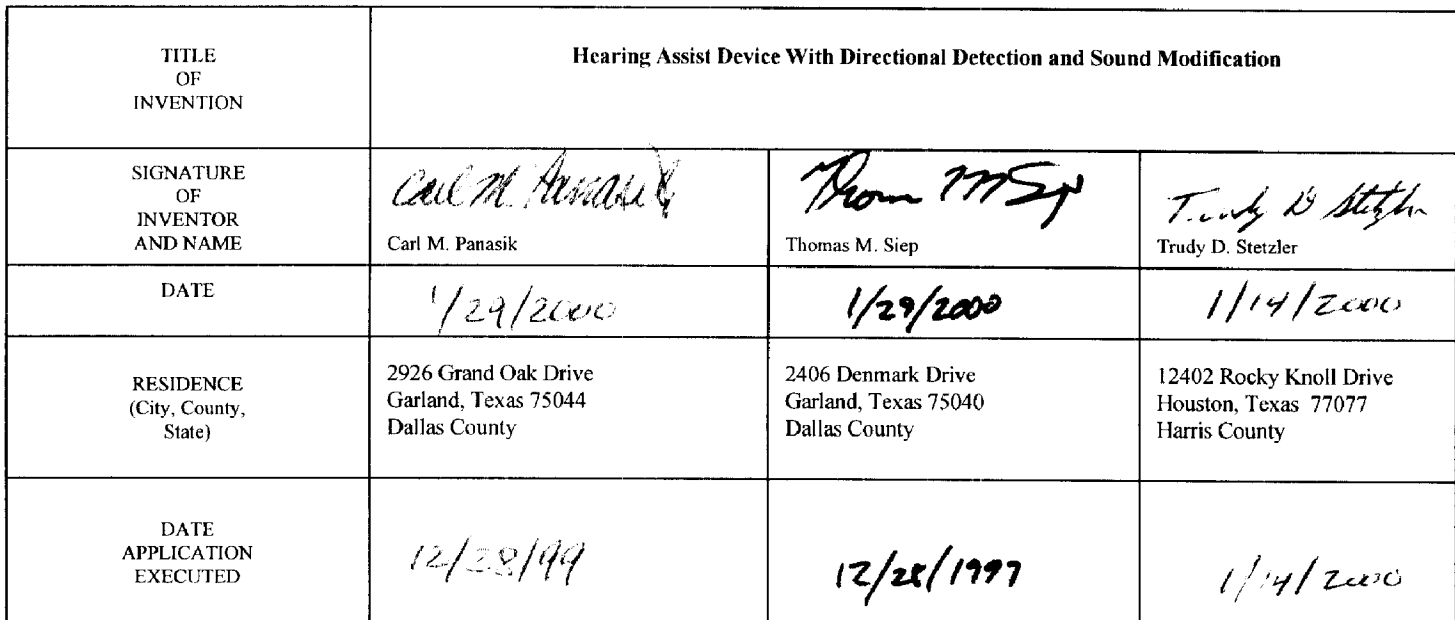 TITLE
OF
INVENTION
Hearing Assist Device With Directional Detection and Sound Modification
SIGNATURE
OF
INVENTOR
AND NAME
Carl M. Panasik
Carl M. Panasik
Thom M Siep
Thomas M. Siep
Trudy D Stetzler
Trudy D. Stetzler
DATE
1/29/2000
1/29/2000
1/14/2000
RESIDENCE
(City, County,
State)
2926 Grand Oak Drive
Garland, Texas 75044
Dallas County
2406 Denmark Drive
Garland, Texas 75040
Dallas County
12402 Rocky Knoll Drive
Houston, Texas 77077
Harris County
DATE
APPLICATION
EXECUTED
12/28/99
12/28/1997
1/14/2000